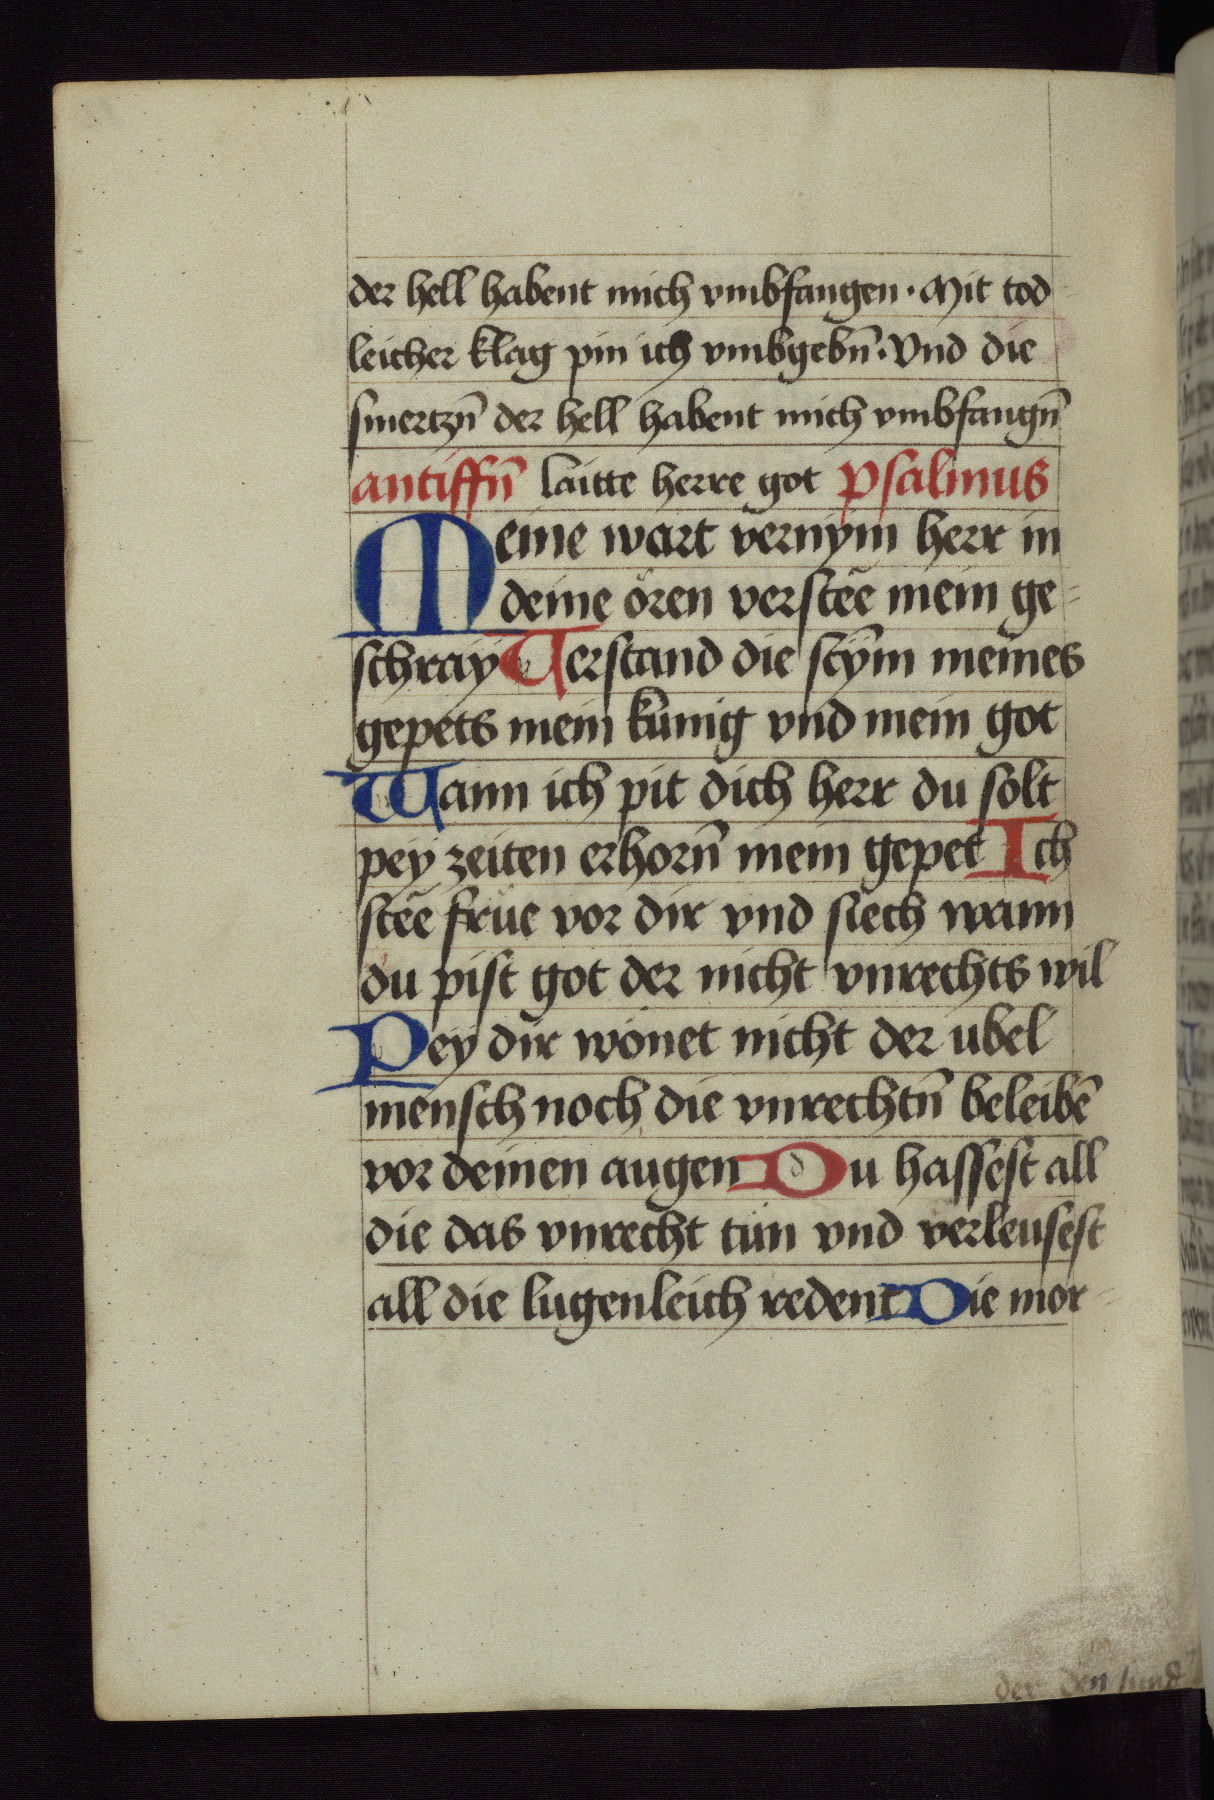 der hell habent mich vmbfangen · Mit tod
leicher klag pin ich vmbgebn̄ · Vnd die
smertzn̄ der hell habent mich vmbfangn̄
antiffn̄ laitte herre got psalmus
Meine wart vernÿm herr in
deine ören versteē mein ge-
schray Verstand die stÿm meines
gepets mein kunig vnd mein got
Wann ich pit dich herr du solt
pey zeiten erhorn̄ mein gepet Ich
steē frue vor dir vnd siech wann
du pist got der nicht vnrechts wil
Pey dir wonet nicht der ubel
mensch noch die vnrechtn̄ beleibē
vor deinen augen Du hassest all
die das vnrecht tun vnd verleusest
all die lugenleich redent Die mor-
der den sund